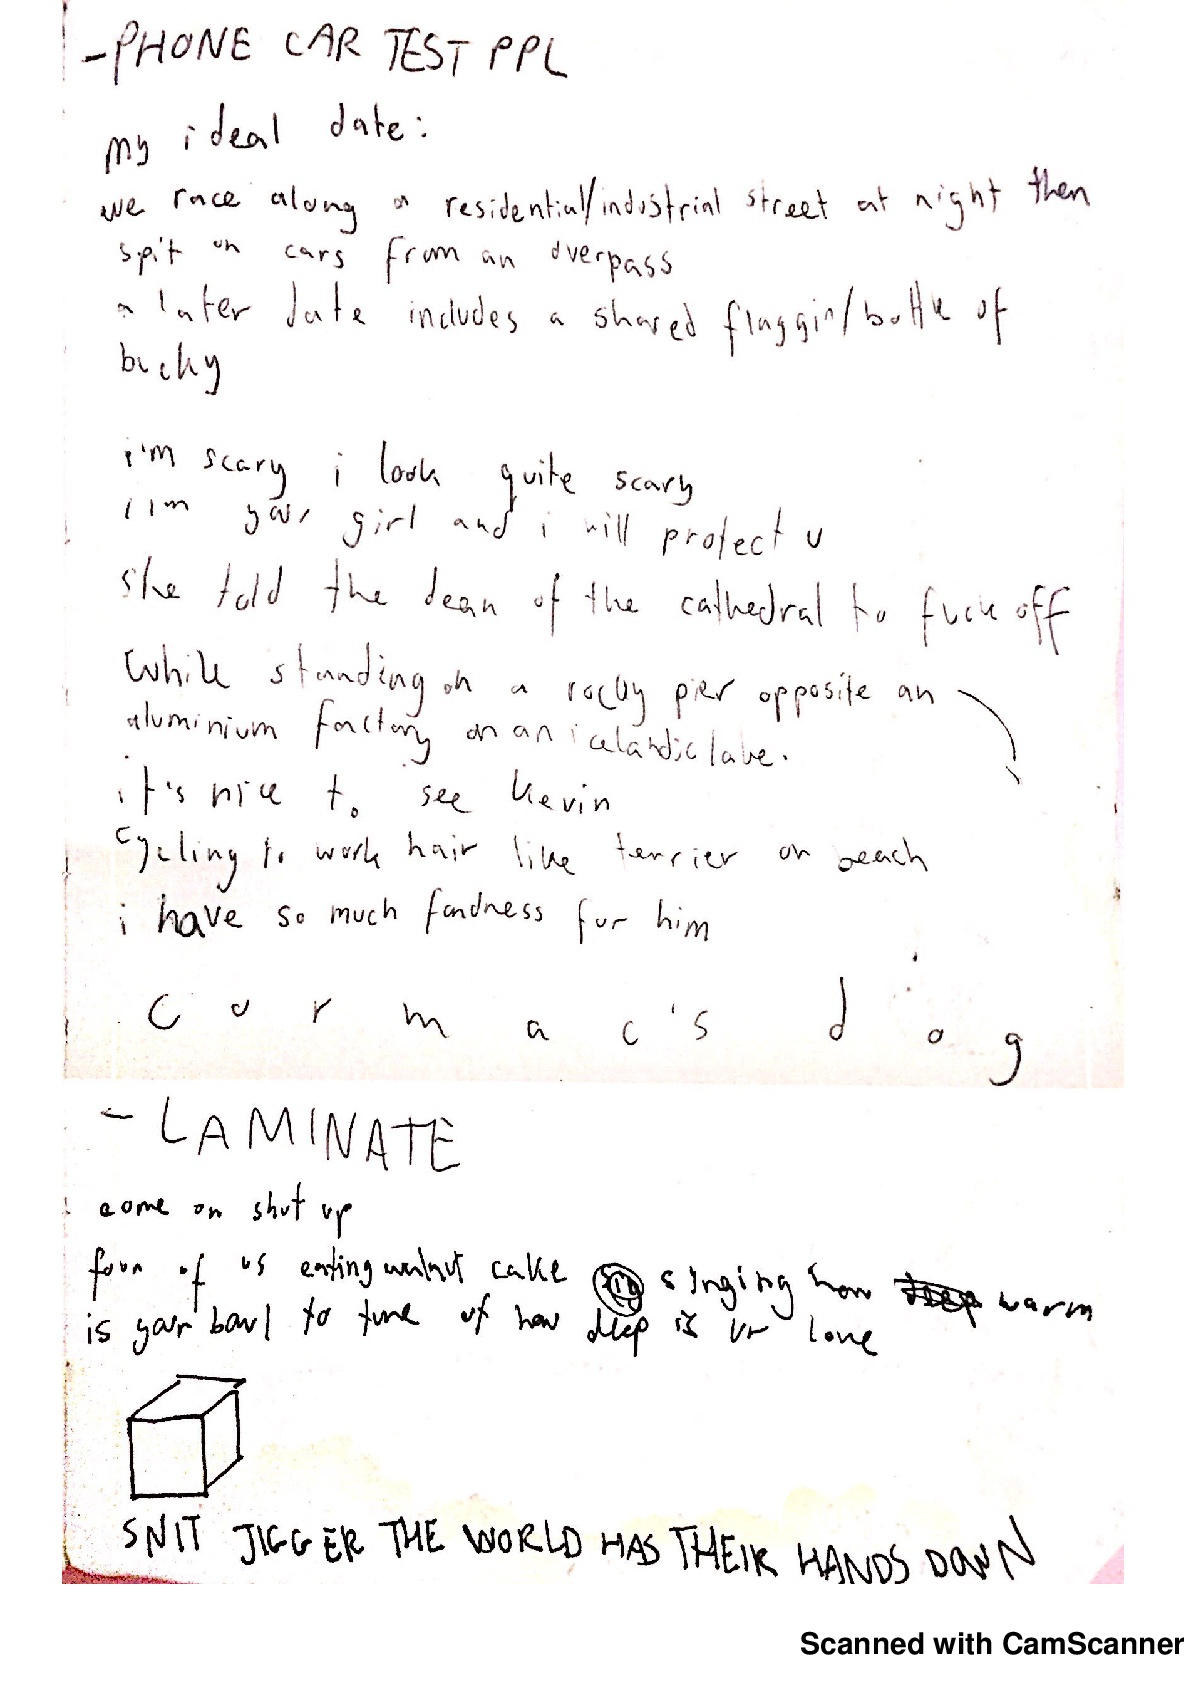 - PHONE CAR TEST PPL
my ideal date:
we race along a residential/industrial street at night then
spit on cars from an overpass
a later date includes a shared flaggin/bottle of
bucky
i'm scary i look quite scary
i'm your girl and i will protect u
she told the dean of the cathedral to fuck off
While standing on a rocky pier opposite an
aluminium factory on an icelandic lake.
it's nice to see Kevin
cycling to work hair like terrier on beach
i have so much fondness for him
cormac's dog
- LAMINATE
come on shut up
four of us eating walnut cake singing how warm
is your bowl to tune of how deep is ur love
SNIT JIGGER THE WORLD HAS THEIR HANDS DOWN
Scanned with CamScanner